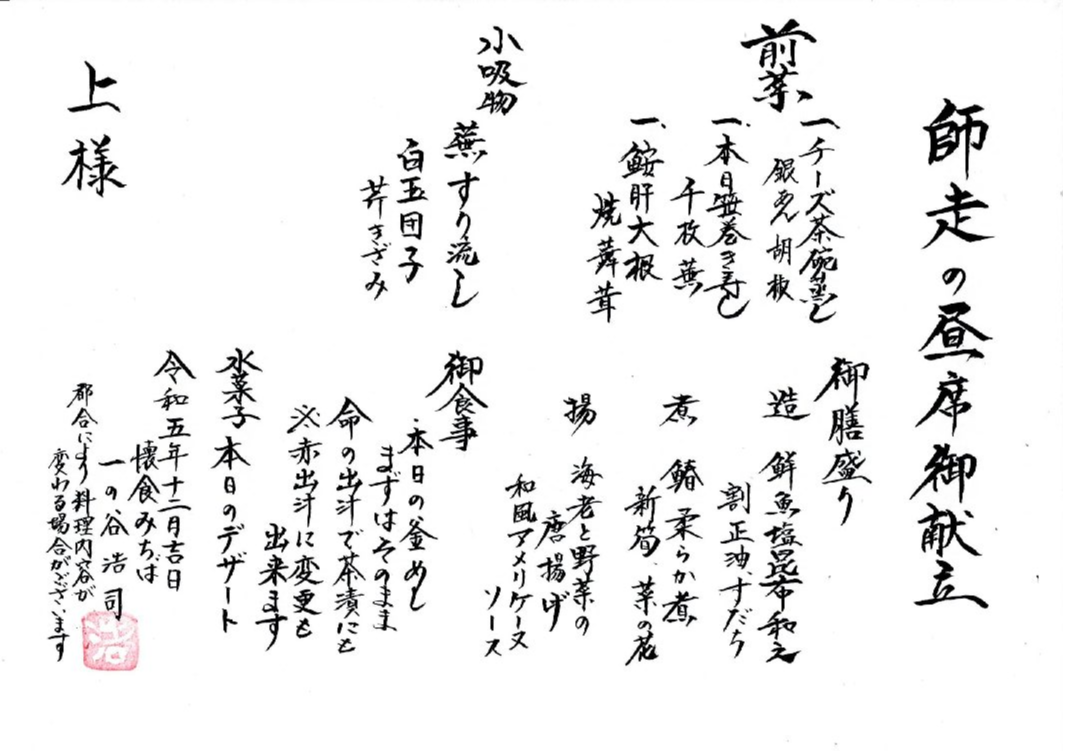 師走の昼席御献立
前菜
一、チーズ茶碗蒸し
銀あん 胡椒
一、本日笹巻き寿し
千枚蕪
一、鮟肝大根
焼舞茸
小吸物
蕪すり流し
白玉団子
芹きざみ
上様
御膳盛り
造 鮮魚塩昆布和え
割正油、すだち
煮 鰆 柔らか煮
新筍、菜の花
揚 海老と野菜の
唐揚げ
和風アメリケーヌ
ソース
御食事
本日の釜めし
まずはそのまま
命の出汁で茶漬にも
※赤出汁に変更も
出来ます
水菓子 本日のデザート
令和五年十二月吉日
懐食みちば
一の谷 浩司
都合により料理内容が
変わる場合がございます
浩